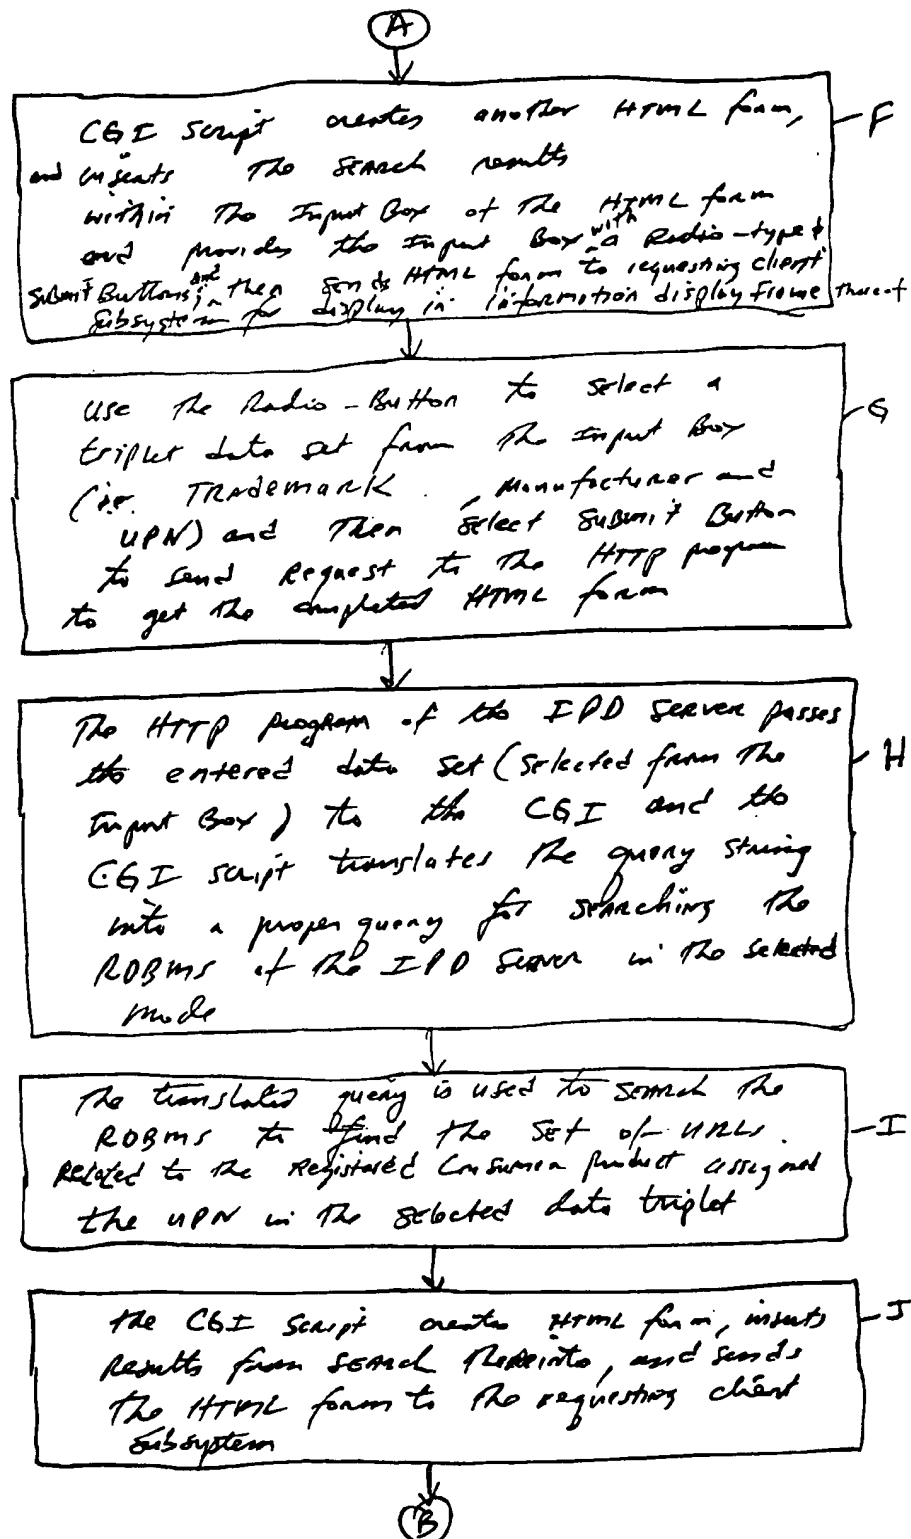 A
CGI Script creates another HTML form,
and inserts the search results
within the Input Box of the HTML form
and provides the Input Box with a Radio-type &
Submit Buttons, and then sends HTML form to requesting client
subsystem for display in information display frame thereof
F
Use the Radio-Button to select a
triplet data set from the Input Box
(i.e. TRADEMARK, Manufacturer and
UPN) and then select Submit Button
to send Request to the HTTP program
to get the completed HTML form
G
The HTTP program of the IPD Server passes
the entered data set (selected from the
Input Box) to the CGI and the
CGI script translates the query string
into a proper query for searching the
RDBMS of the IPD Server in the selected
mode
H
The translated query is used to search the
RDBMS to find the set of URLs
Related to the Registered Consumer product assigned
the UPN in the selected data triplet
I
the CGI Script creates HTML form, inserts
Results from search thereinto, and sends
the HTML form to the requesting client
subsystem
J
B